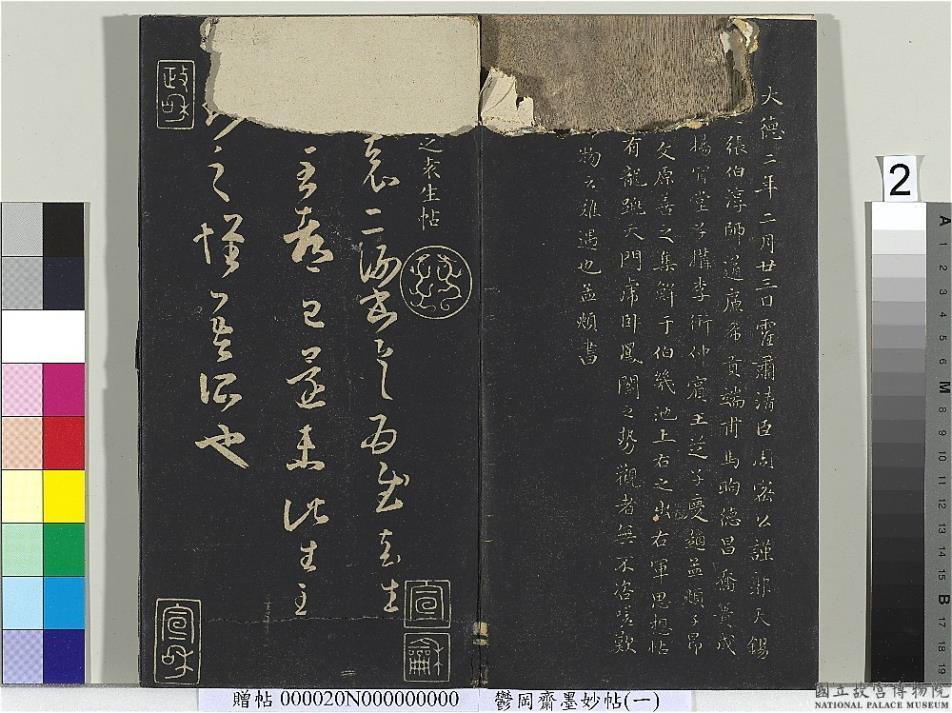 大德二年二月廿三日霍爾清臣周密公謹郭天錫
張伯淳師道廉希貢端甫馬昫德昌喬簣成
楊肯堂子構李衎仲賓王芝子慶趙孟頫子昂
文原善之集鮮于伯幾池上右之出右軍思想帖
有龍跳天門虎卧鳳閣之勢觀者無不咨嗟歎
物之難遇也孟頫書
之袁生帖
袁二謝書云即爲袁生
至都已還未此生至
之懷吾所也
政和
宣和
宣龢
2
贈帖 000020N000000000
鬱岡齋墨妙帖(一)
國立故宮博物院
NATIONAL PALACE MUSEUM